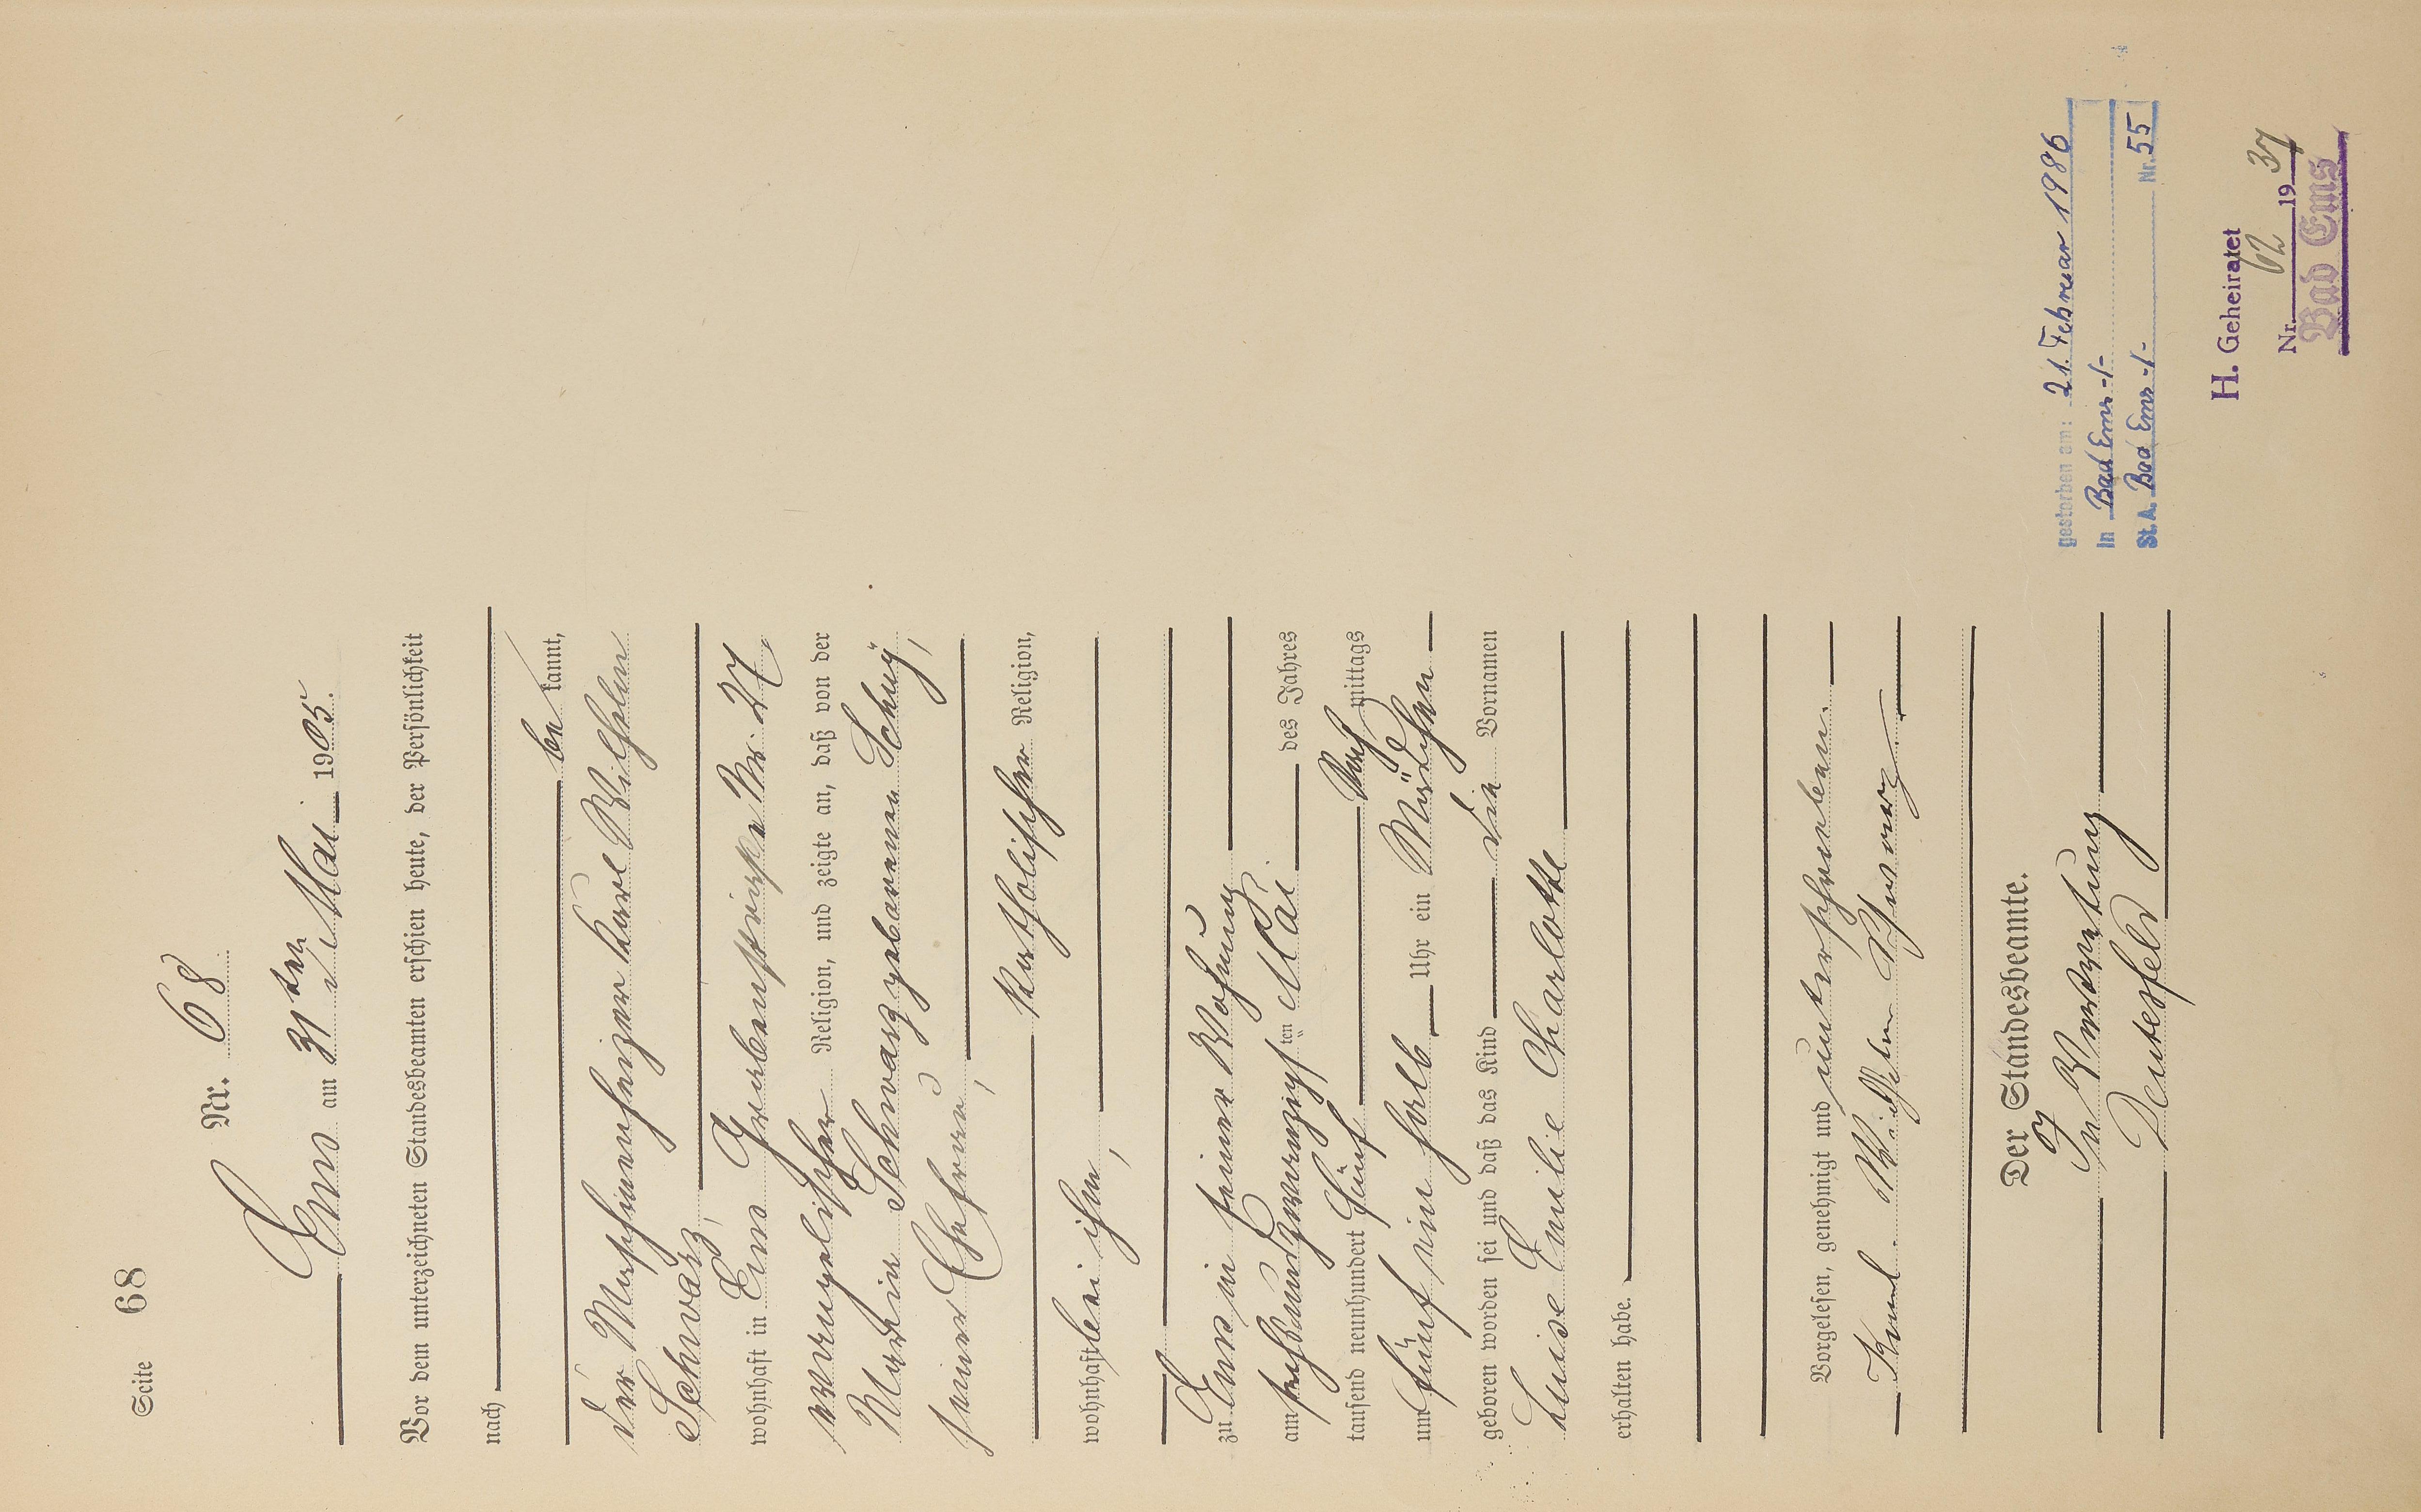 Seite 68
Nr. 68
Ems am 31ten Mai 1905.
Vor dem unterzeichneten Standesbeamten erschien heute, der Persönlichkeit
nach
be kannt,
der Maschinenheizer Karl Wilhelm
Schwarz,
wohnhaft in Ems Grabenstraße Nr. 27,
evangelischer Religion, und zeigte an, daß von der
Maria Schwarz geborenen Schuy,
seiner Ehefrau,
katholischer Religion,
wohnhaft bei ihm,
zu Ems in seiner Wohnung
am sechsundzwanzigsten Mai des Jahres
tausend neunhundert fünf Nach mittags
um fünf ein halb Uhr ein Mädchen
geboren worden sei und daß das Kind die Vornamen
Luise Emilie Charlotte
erhalten habe.
Vorgelesen, genehmigt und unterschrieben.
Karl Wilhelm Schwarz
Der Standesbeamte.
In Vertretung
gestorben am: 21. Februar 1986
in Bad Ems -/-
St. A. Bad Ems -/- Nr. 55
H. Geheiratet
Nr. 62 1937
Bad Ems